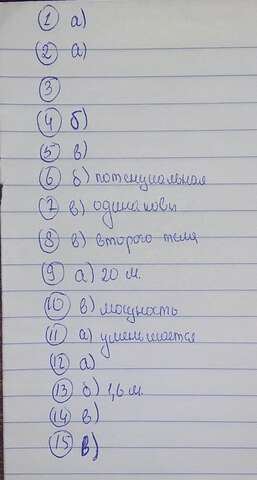 1 а)
2 а)
3
4 б)
5 в)
6 б) потенциальная
7 в) одинаковы
8 в) второго тела
9 а) 20 м.
10 в) мощность
11 а) уменьшается
12 а)
13 б) 1,6 м.
14 в)
15 в)